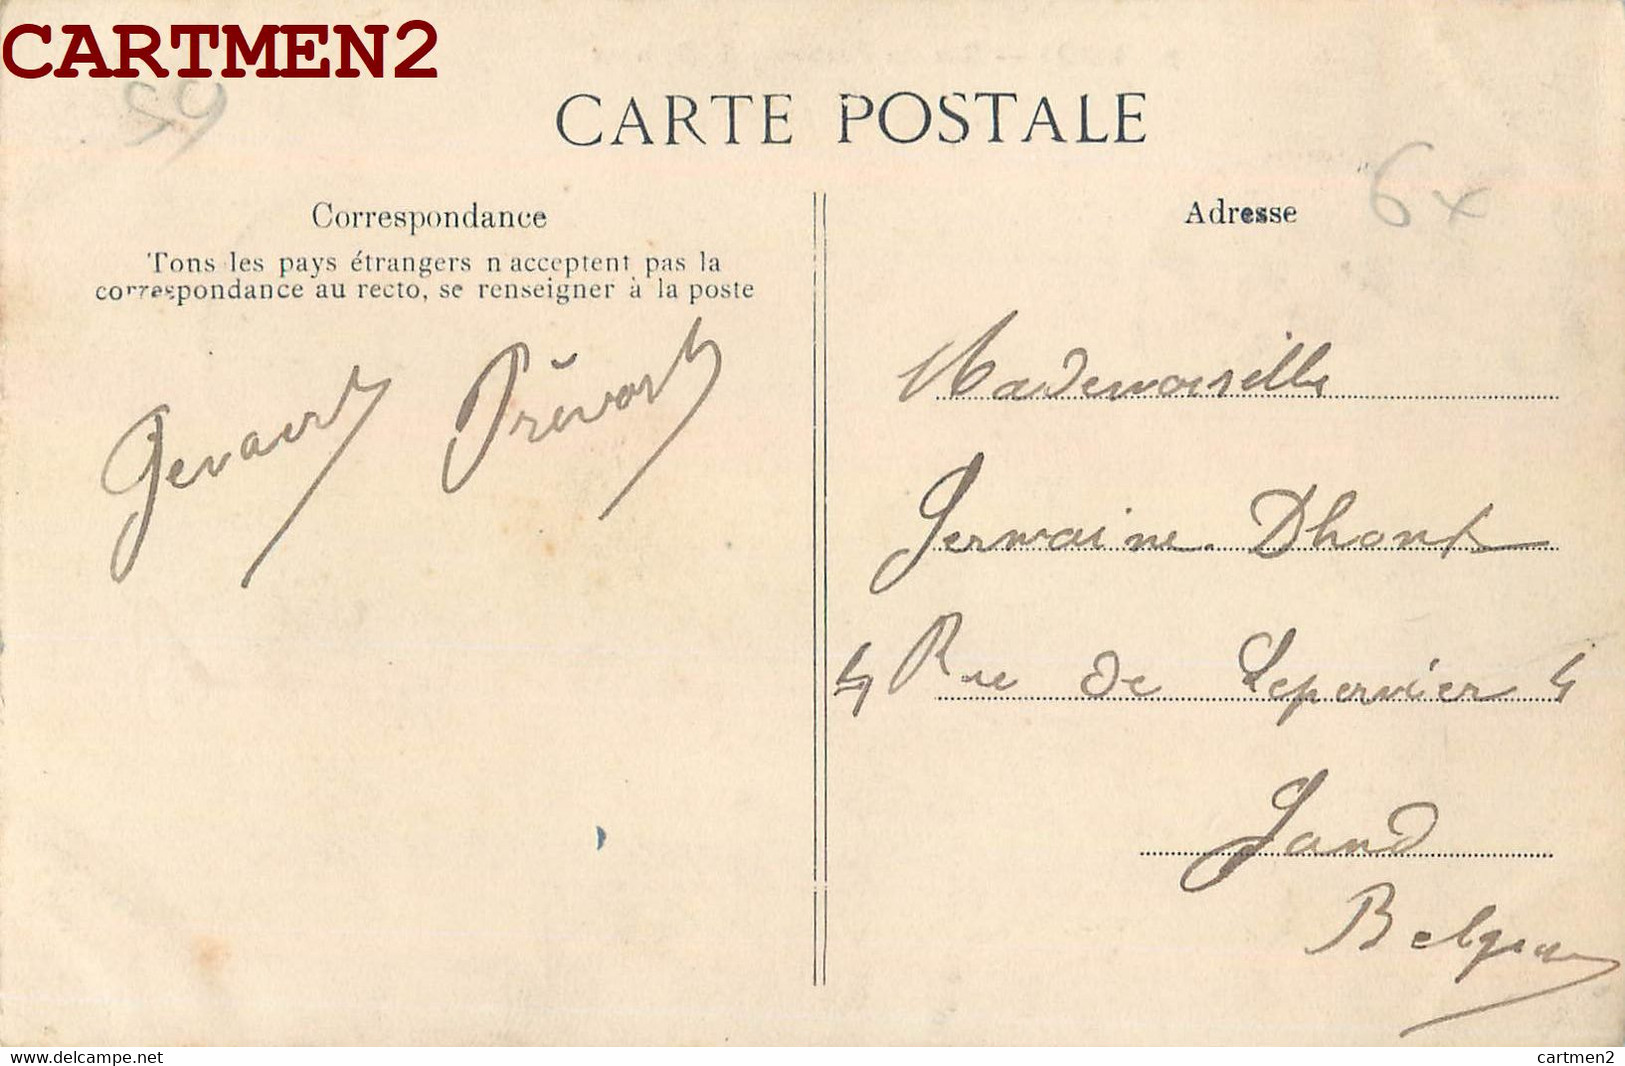 CARTMEN2
59
CARTE POSTALE
6x
Correspondance
Adresse
Tous les pays étrangers n'acceptent pas la
correspondance au recto, se renseigner à la poste
Prévost
Mademoiselle
Germaine Dhont
4 Rue de Lepervier 4
Gand
Belgique
delcampe.net
cartmen2